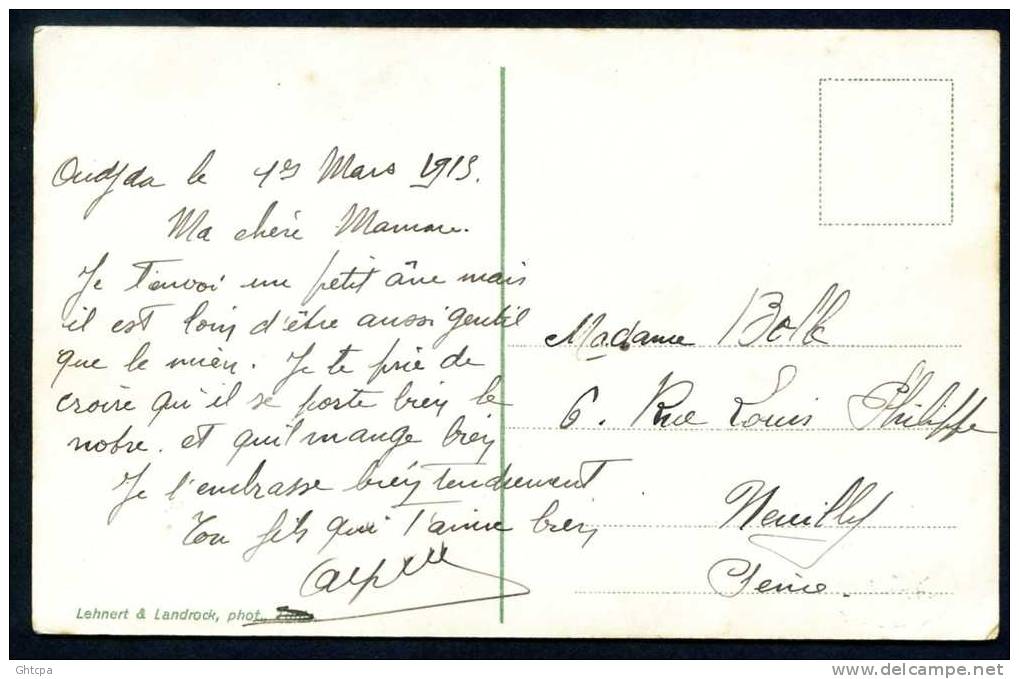 Oudjda le 1er Mars 1913.
Ma chère Maman.
Je t'envoi un petit âne mais
il est loin d'être aussi gentil
que le mien. Je te prie de
croire qu'il se porte bien le
notre. et qu'il mange bien
Je t'embrasse bien tendrement
Ton fils qui t'aime bien
Madame Bolk
6. Rue Louis Philippe
Neuilly
Seine.
Lehnert & Landrock, phot.,
Ghtcpa
www.delcampe.net